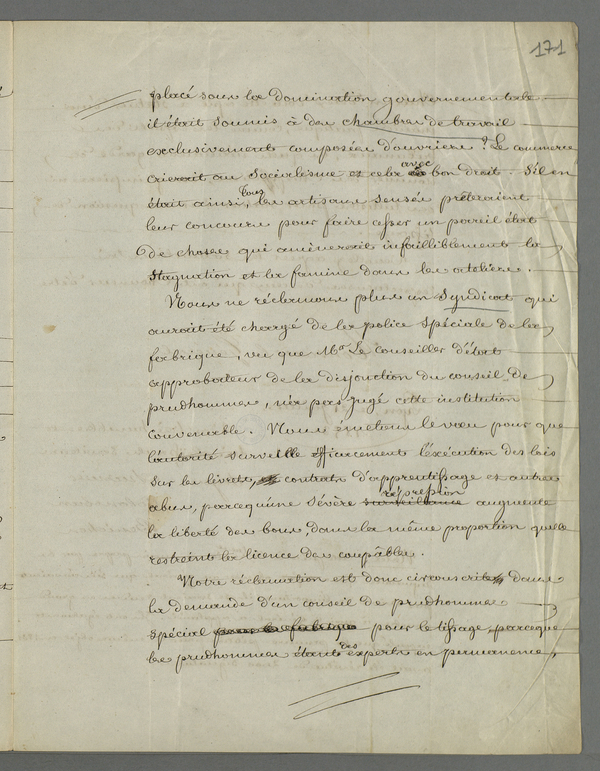 171
placé sous la domination gouvernementale
il était soumis à des chambres de travail
exclusivement composées d'ouvriers ? Le commerce
crierait au socialisme et cela avec bon droit. S'il en
était ainsi, tous les artisans sensés prêteraient
leur concours pour faire cesser un pareil état
de choses qui amènerait infailliblement la
stagnation et la famine dans les ateliers.
Nous ne réclamons plus un Syndicat qui
aurait été chargé de la police spéciale de la
fabrique, vu que Mr Le Conseiller d'état
approbateur de la disjonction du conseil de
prudhommes, n'a pas jugé cette institution
convenable. Nous émettons le vœu pour que
l'autorité surveille efficacement l'exécution des lois
sur les livrets, contrats d'apprentissage et autres
abus, parcequ'une sévère surveillance répression augmente
la liberté des bons, dans la même proportion quelle
restreint la licence des coupables.
Notre réclamation est donc circonscrite dans
la demande d'un conseil de prudhommes
spécial pour la fabrique pour le tissage, parceque
les prudhommes étant des experts en permanence,